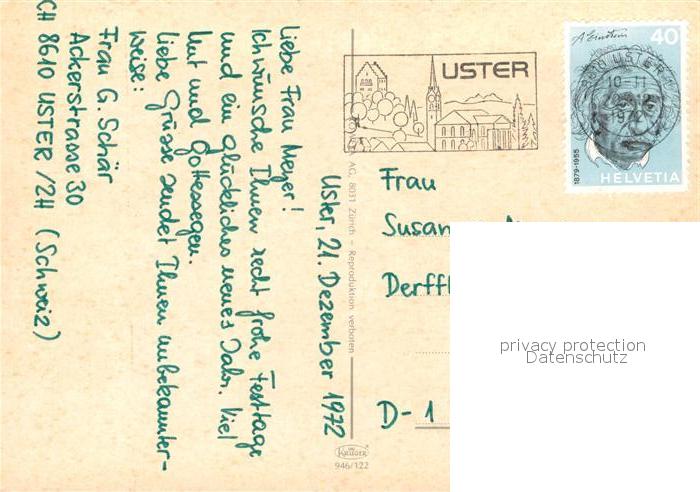 Uster, 21. Dezember 1972
Liebe Frau Meyer!
Ich wünsche Ihnen recht frohe Festtage
und ein glückliches neues Jahr. Viel
Mut und Gottessegen.
Liebe Grüsse sendet Ihnen unbekannter-
weise:
Frau G. Schär
Ackerstrasse 30
CH 8610 USTER / ZH (Schweiz)
AG, 8031 Zürich – Reproduktion verboten
KRÜGER
946/122
USTER
A. Einstein
40
USTER
10-11
1972
1879-1955
HELVETIA
Frau
Susan
Derffl
D- 1
privacy protection
Datenschutz